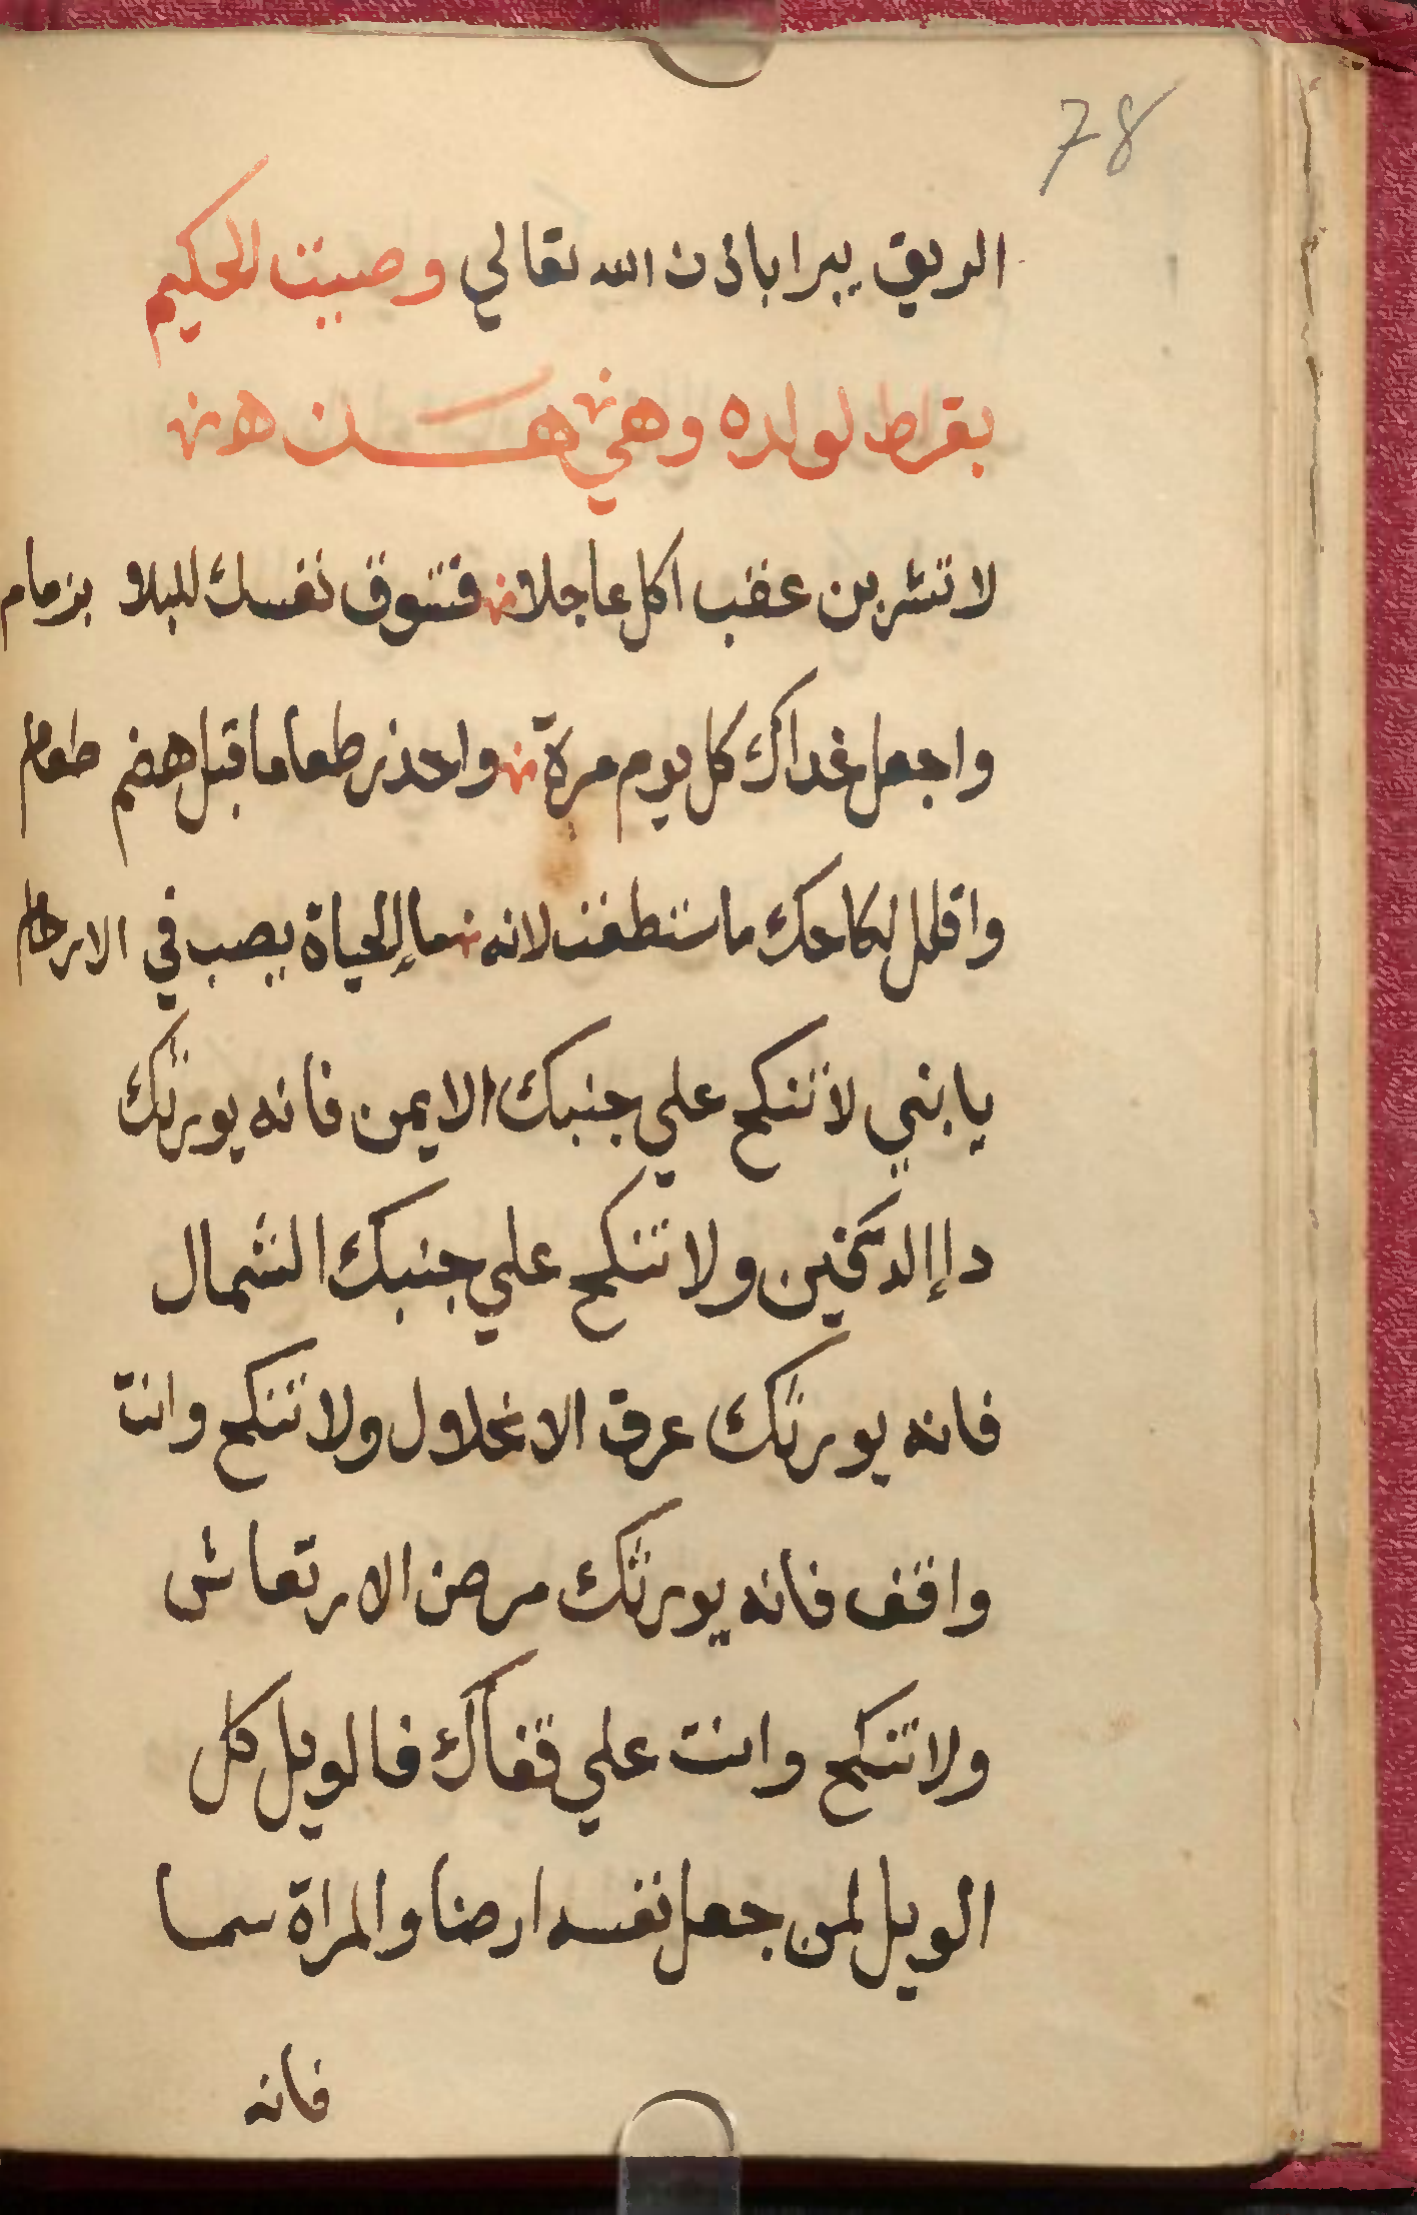 78
الريق يبرا باذن الله تعالي وصيت الحكيم
بقراط لولده وهي هذه
لا تشربن عقب اكل عاجلا فتسوق نفسك للبلا بزمام
واجعل غداك كل يوم مرة واحذر طعاما قبل هضم طعام
واقلل نكاحك ما ستطعت لانه ماإ الحياة يصب في الارحام
يا بني لا تنكح علي جنبك الايمن فانه يورثك
داإ الدكفين ولا تنكح علي جنبك الشمال
فانه يورثك عرق الانحلال ولا تنكح وانت
واقف فانه يورثك مرض الارتعاش
ولا تنكح وانت علي قفاك فالويل كل
الويل لمن جعل نفسه ارضا والمراة سما
فانه